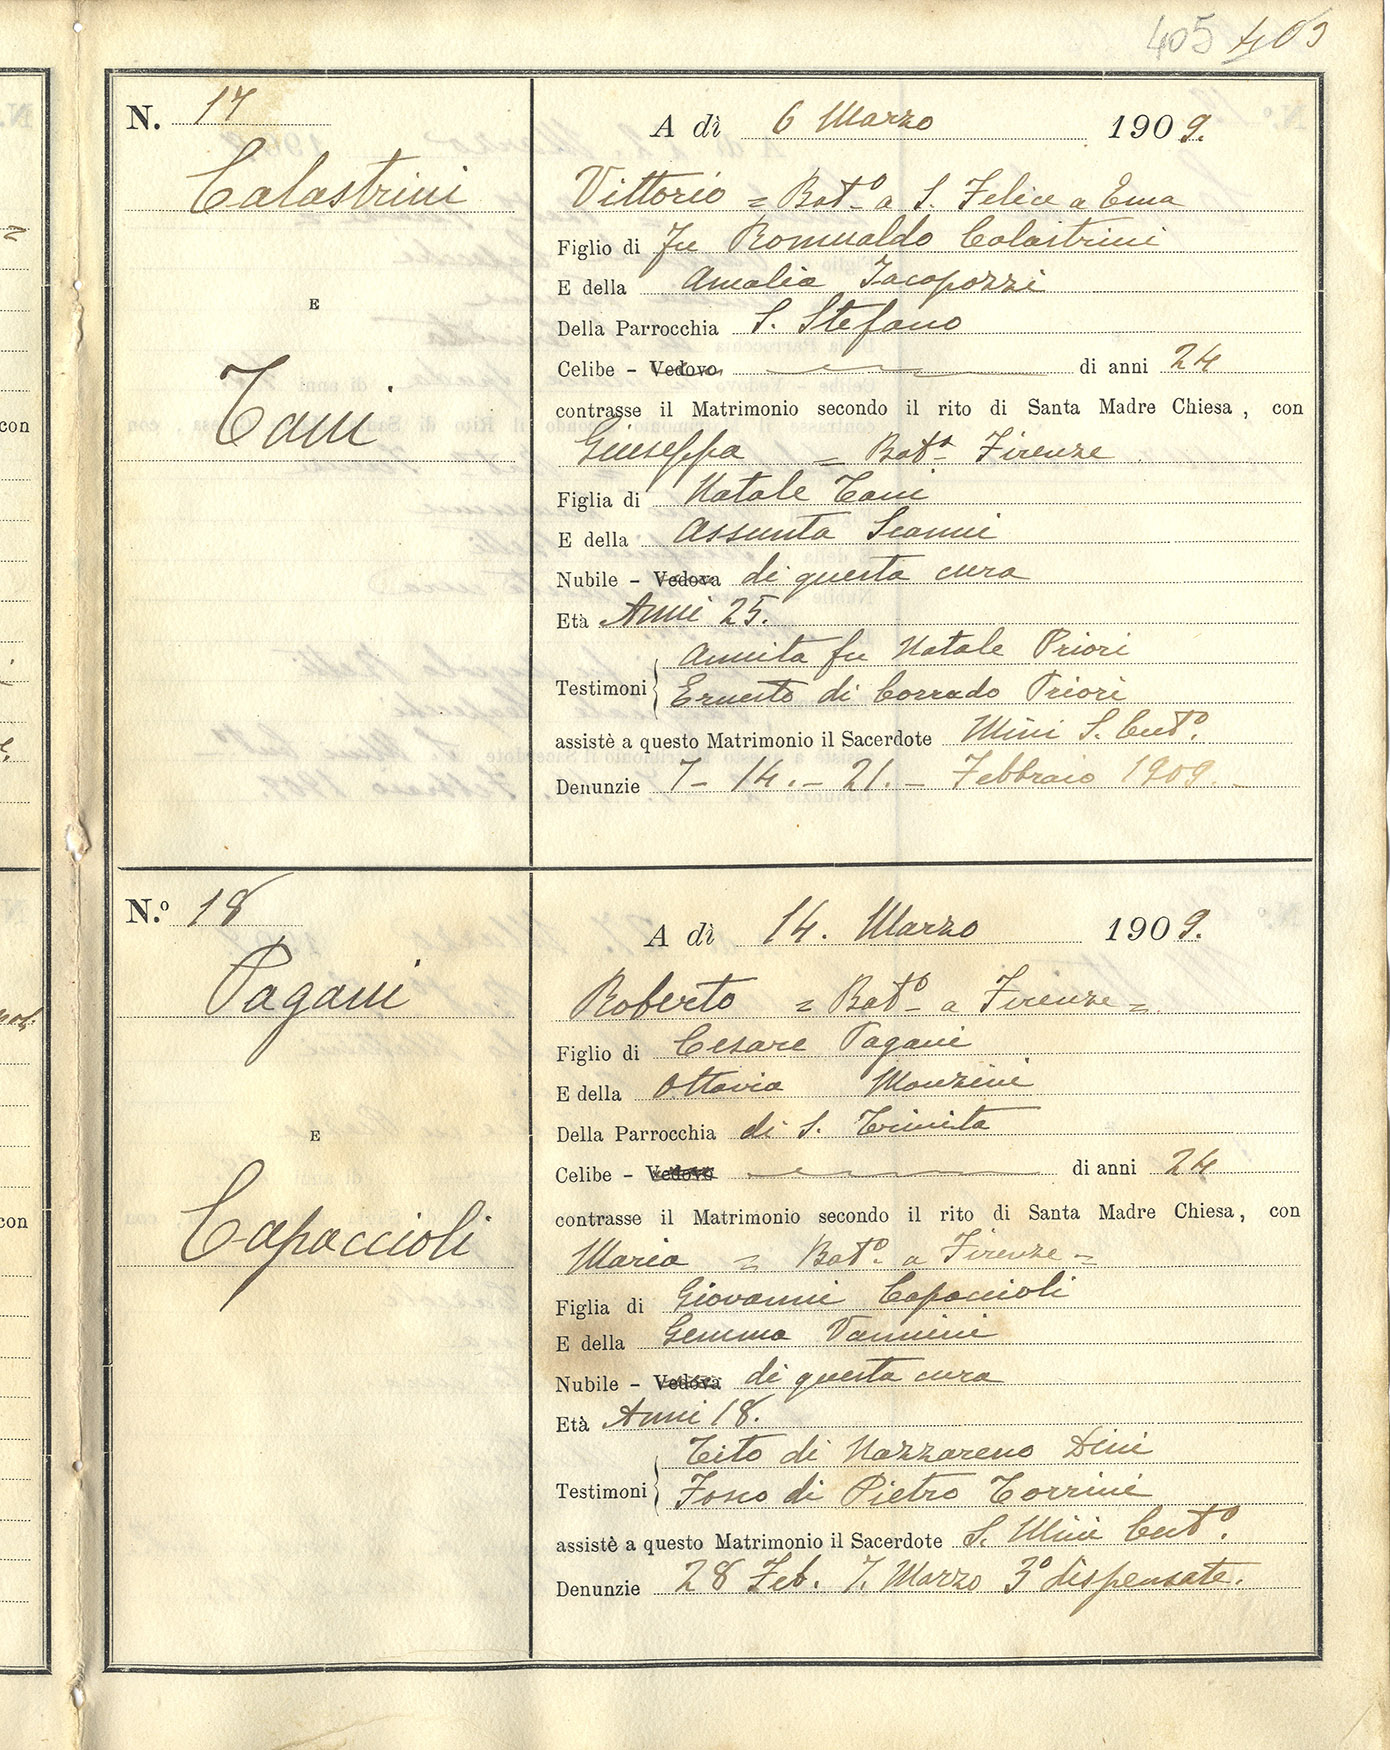 405 403
N. 17
Calastrini
E
Tani
A dì 6 Marzo 1909.
Vittorio = Bat.º a S. Felice a Ema
Figlio di fu Romualdo Calastrini
E della Amalia Iacopozzi
Della Parrocchia S. Stefano
Celibe - Vedovo di anni 24
contrasse il Matrimonio secondo il rito di Santa Madre Chiesa, con
Giuseppa = Bat.ª Firenze
Figlia di Natale Tani
E della Assunta Scanni
Nubile - Vedova di questa cura
Età Anni 25.
Testimoni { Annita fu Natale Priori
Ernesto di Corrado Priori
assistè a questo Matrimonio il Sacerdote Mini S. Cur.º
Denunzie 7 - 14. - 21. - Febbraio 1909.
N.º 18
Pagani
E
Capaccioli
A dì 14. Marzo 1909.
Roberto = Bat.º a Firenze =
Figlio di Cesare Pagani
E della Ottavia Monzini
Della Parrocchia di S. Trinita
Celibe - Vedovo di anni 24
contrasse il Matrimonio secondo il rito di Santa Madre Chiesa, con
Maria = Bat.º a Firenze =
Figlia di Giovanni Capaccioli
E della Gemma Vannini
Nubile - Vedova di questa cura
Età Anni 18.
Testimoni { Tito di Nazzareno Dini
Fosco di Pietro Torrini
assistè a questo Matrimonio il Sacerdote S. Mini Cur.º
Denunzie 28 Feb. 7. Marzo 3º dispensate.